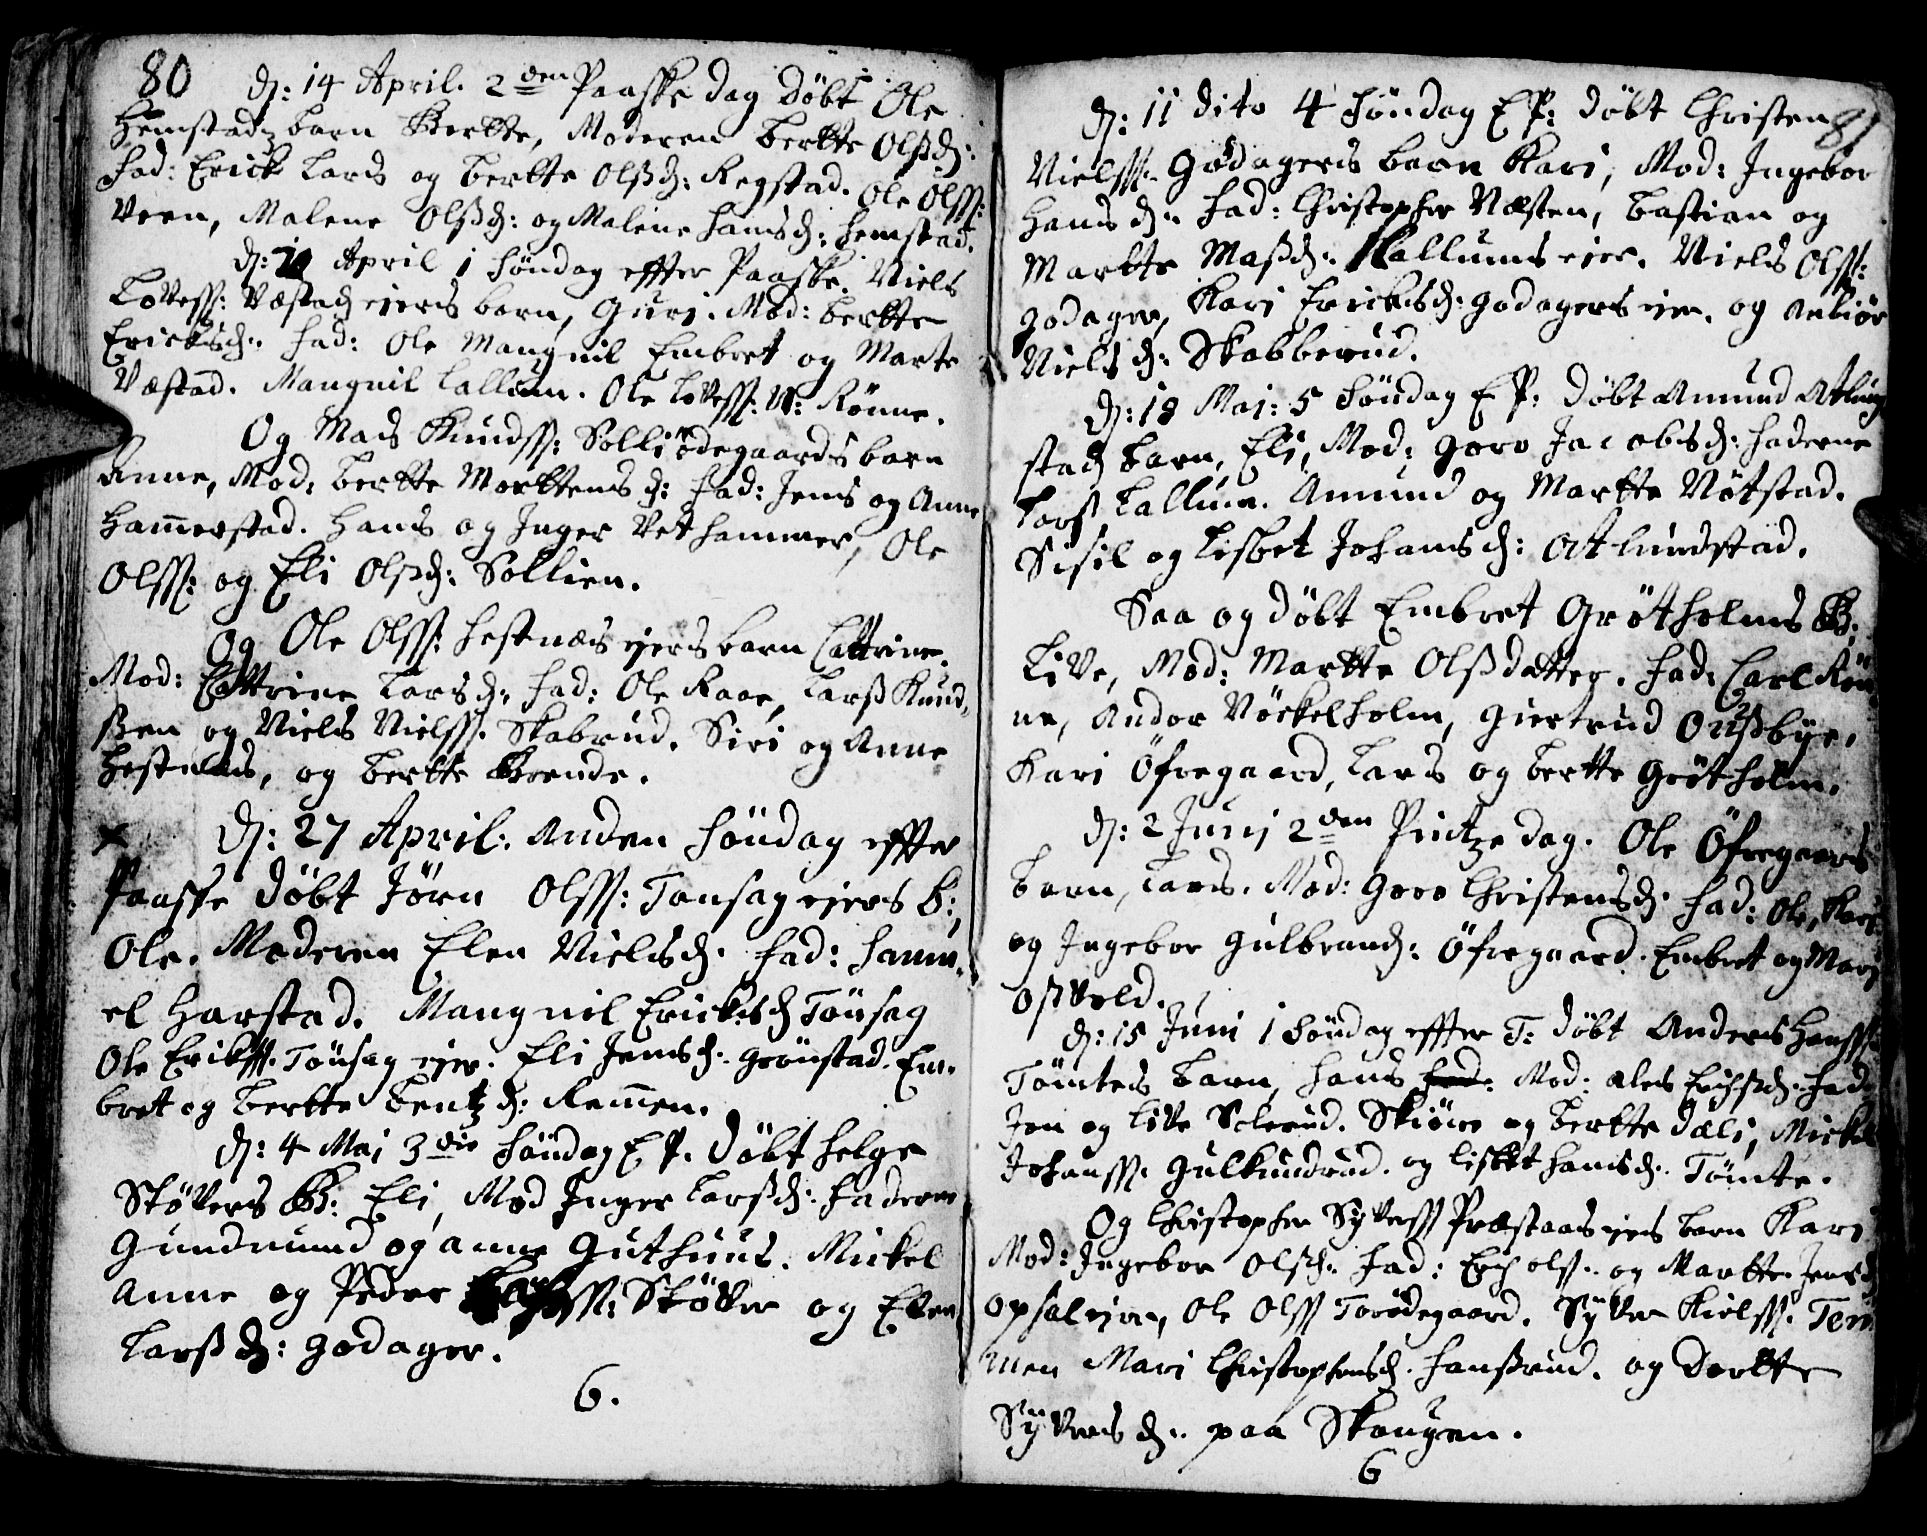 80
dj: 14 April. 2den Paaske dag Döbt Ole
Hemstadz barn Bertte, Moderen bertte Olßdj:
Fad: Erick Lars og bertte Olßdj: Regstad. Ole Olss:
Veen, Malene Olßdj: og Malene Hansdj: Hemstad.
dj: 20 April 1 Söndag effter Paaske. Niels
Lovess: Væstad ejers barn, Guri. Mod: bertte
Ericksdj: Fad: Ole Mangnil Embret og Marte
Væstad. Mangnil Lallum. Ole Lovess: N: Rönne.
Og Mads Knudss: Solliödegaards barn
Anne, Mod: bertte Morttensdj: Fad: Jens og Anne
Hammerstad. Hans og Inger Vethammer, Ole
Olss: og Eli Olßdj: Sollien.
Og Ole Olss: Hestnæs ejers barn Cattrine.
Mod: Cattrine Larsdj: Fad: Ole Raae, Larß Knud-
ßen og Niels Nielss. Skabrud. Siri og Anne
Hestnæs, og bertte Brende.
x dj: 27 April: Anden Söndag effter
Paaske Döbt Jörn Olss: Tonsag ejers b:,
Ole. Moderen Elen Nielsdj. Fad: Samu-
el Harstad. Mangnil Ericksdj Tönsag
Ole Erikss. Tönsag ejer. Eli Jensdj. Grönstad. Em-
bret og bertte bentzdj: Remmen.
dj: 4 Maj 3die Söndag E P. Döbt Helge
Stövers B: Eli, Mod Inger Larßdj: Faderne
Gundmund og anne Guthuus. Mickel
Anne og Peder ss: Stöver og Elen
Larßdj: Godager.
6.
81
dj: 11 dito 4 Söndag E P: Döbt Christen
Nielss. Godagers barn Kari, Mod: Ingebor
Hansdj. Fad: Christopher Næsten, bastian og
Martte Maßdj. Kallums ejer. Niels Olss:
Godager, Kari Ericksdj: Godagers ejer. og
Nielsdj: Skabberud.
dj: 18 Maj: 5 Söndag E P: Döbt Amund Atlung
stadz barn, Eli, Mod: Goro Jacobsdj: Faderne
Larß Lallum. Amund og Martte Nötstad.
Sisil og Lisbet Johansdj: Atlundstad.
Saa og Döbt Embret Grötholms B:
Live, Mod: Martte Olßdatter. Fad: Carl Rön
ne, Andor Nöckelholm, Giertrud Oußbye.
Kari Öfregaard, Lars og bertte Grötholm.
dj: 2 Junj 2den Pintze dag. Ole Öfregaards
barn, Lars. Mod: Goro Christensdj. Fad: Ole, Kari
og Ingebor Gulbrandj: Öfregaard. Embret og Mari
Ostvold.
dj: 15 Juni 1 Söndag effter T: Döbt Anders Hanss
Tömtes barn, Hans Fad: Mod: Ales Erichsdj. Fad:
Jon og Live Solerud. Skiöre og bertte Dæli, Mickel
Johanss. Gulkundrud. og lisbet Hansdj. Tömte.
Og Christopher Syverss Præstaas ejers barn Kari
Mod: Ingebor Olsdj. Fad: Erich ols. og Martte Jensdj
Opsal ejer, Ole Olss Torödegaard. Syver Nielss. Tem
men Mari Christophersdj. Hanßrud. og Dortte
Syversdj. paa Skougen.
6